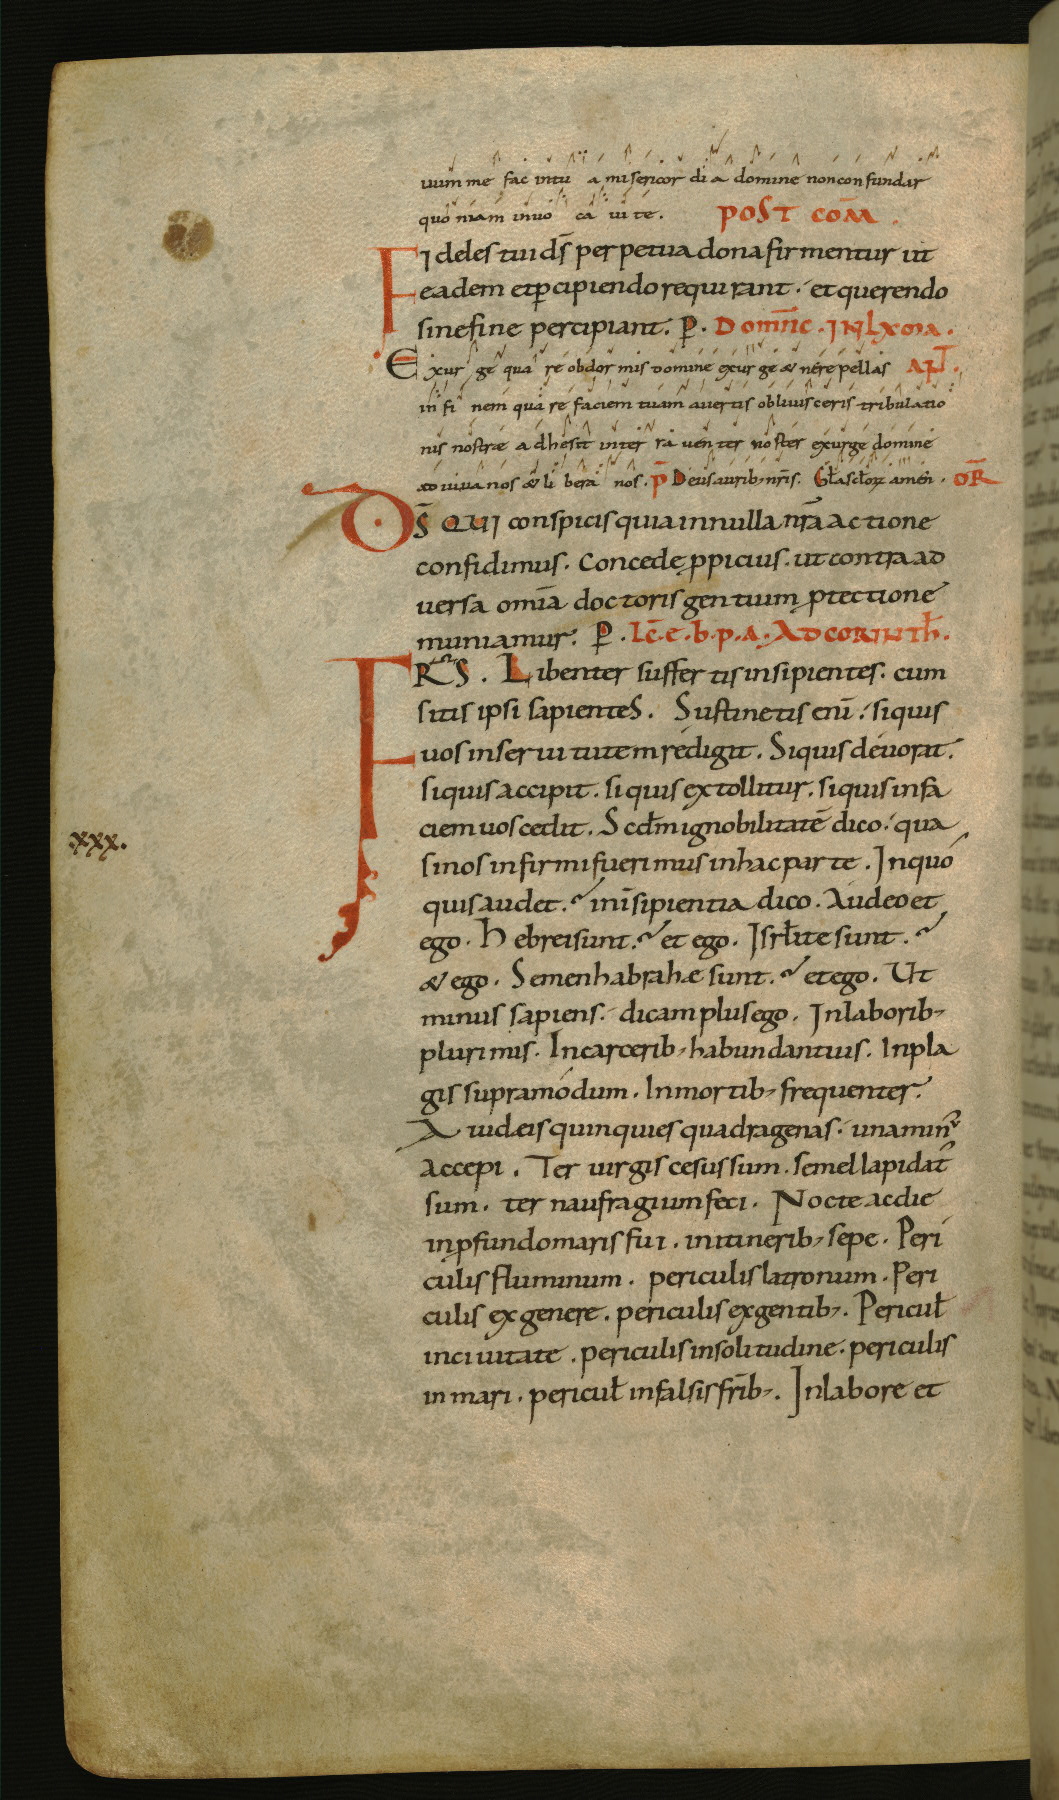 uum me fac in tu a misericor di a domine non confundar
quo niam invo ca ui te. POST COM̄.
Fideles tui ds̄ perpetua dona firmentur ut
eadem et p̄cipiendo requirant. et querendo
sine fine percipiant. P̱. DOMINIC. IN LXMA.
Exur ge qua re obdor mis domine exur ge & ne re pellas AÑT.
in fi nem qua re faciem tuam avertis obliuisceris tribulatio
nis nostræ adhesit in ter ra uen ter noster exurge domine
adviva nos & li bera nos. p̄ Deus aurib; nr̄is. Gła scłoꝝ amen. OR̄
DS̄ QUI conspicis quia in nulla nr̄a actione
confidimus. Concede ꝓpicius. ut contra ad
versa omīa doctoris gentium ꝓtectione
muniamur. P̱. LC̄. E. B. P. A. AD CORINTH̄.
FRS̄. Libenter suffertis insipientes. cum
sitis ipsi sapienteS. Sustinetis enī. si quis
uos in seruitutem redigit. Si quis deuorat.
si quis accipit. si quis extollitur. si quis in fa
ciem uos cedit. Scdm̄ ignobilitatē dico. qua
si nos infirmi fuerimus in hac parte. In quo
quis audet. in īsipientia dico. Audeo et
ego. Hebrei sunt. et ego. Isrłite sunt.
& ego. Semen habrahæ sunt. et ego. Ut
minus sapiens. dicam plus ego. In laborib;
plurimis. In carcerib; habundantius. In pla
gis supra modum. In mortib; frequenter.
A iudæis quinquies quadragenas. una min᷒
accepi. Ter uirgis cesus sum. semel lapidat᷒
sum. ter naufragium feci. Nocte ac die
in ꝓfundo maris fui. in itinerib; sepe. Peri
culis fluminum. periculis latronum. Peri
culis ex genere. periculis ex gentib;. Pericuł
in ciuitate. periculis in solitudine. periculis
in mari. pericuł in falsis fr̄ib;. In labore et
xxx.